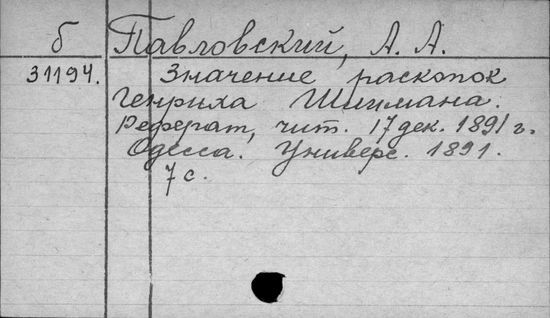 б Павловский, А. А.
31194. Значение раскопок
Генриха Шлимана.
Реферат, чит. 17 дек. 1891 г.
Одесса. Универс. 1891.
7 с.